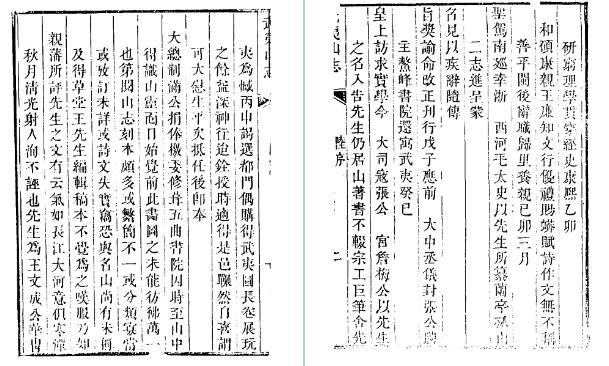 夷為憾丙申謁選都門偶購得武夷圖長卷展玩
之餘益深神往迨銓授時適得是邑驟然自喜謂
可大慰生平矣抵任後即奉
大總制滿公捐俸檄委修葺五曲書院因時至山中
得識山靈面目始覺前此畫圖之未能彷彿萬一
也第閱山志刻本頗多或繁簡不一或分類寡當
或攷訂未詳或詩文失實竊恐與名山尚有未稱
及得草堂王先生編輯稿本不覺為之嘆服乃知
親藩所評先生之文有云氣如長江大河意俱寒潭
秋月清光射人洵不誣也先生為王文成公華冑
武夷山志
研窮理學貫穿經史康熙乙卯
和碩康親王廉知文行優禮賜蟒賦詩作文無不稱
善平閩後辭職歸里養親己卯三月
聖駕南廵幸浙 西河毛太史以先生所纂蘭亭孤山
二志進呈蒙
名見以疾辭隨傳
旨奬諭俞改正刊行戊子應前 大中丞儀封張公聘
主鰲峰書院還寓武夷癸巳
皇上訪求實學今 大司寇張公 宮詹梅公以先生
之名入告先生仍居山著書不輟宗工巨筆舍先
夷山志 陸序 二